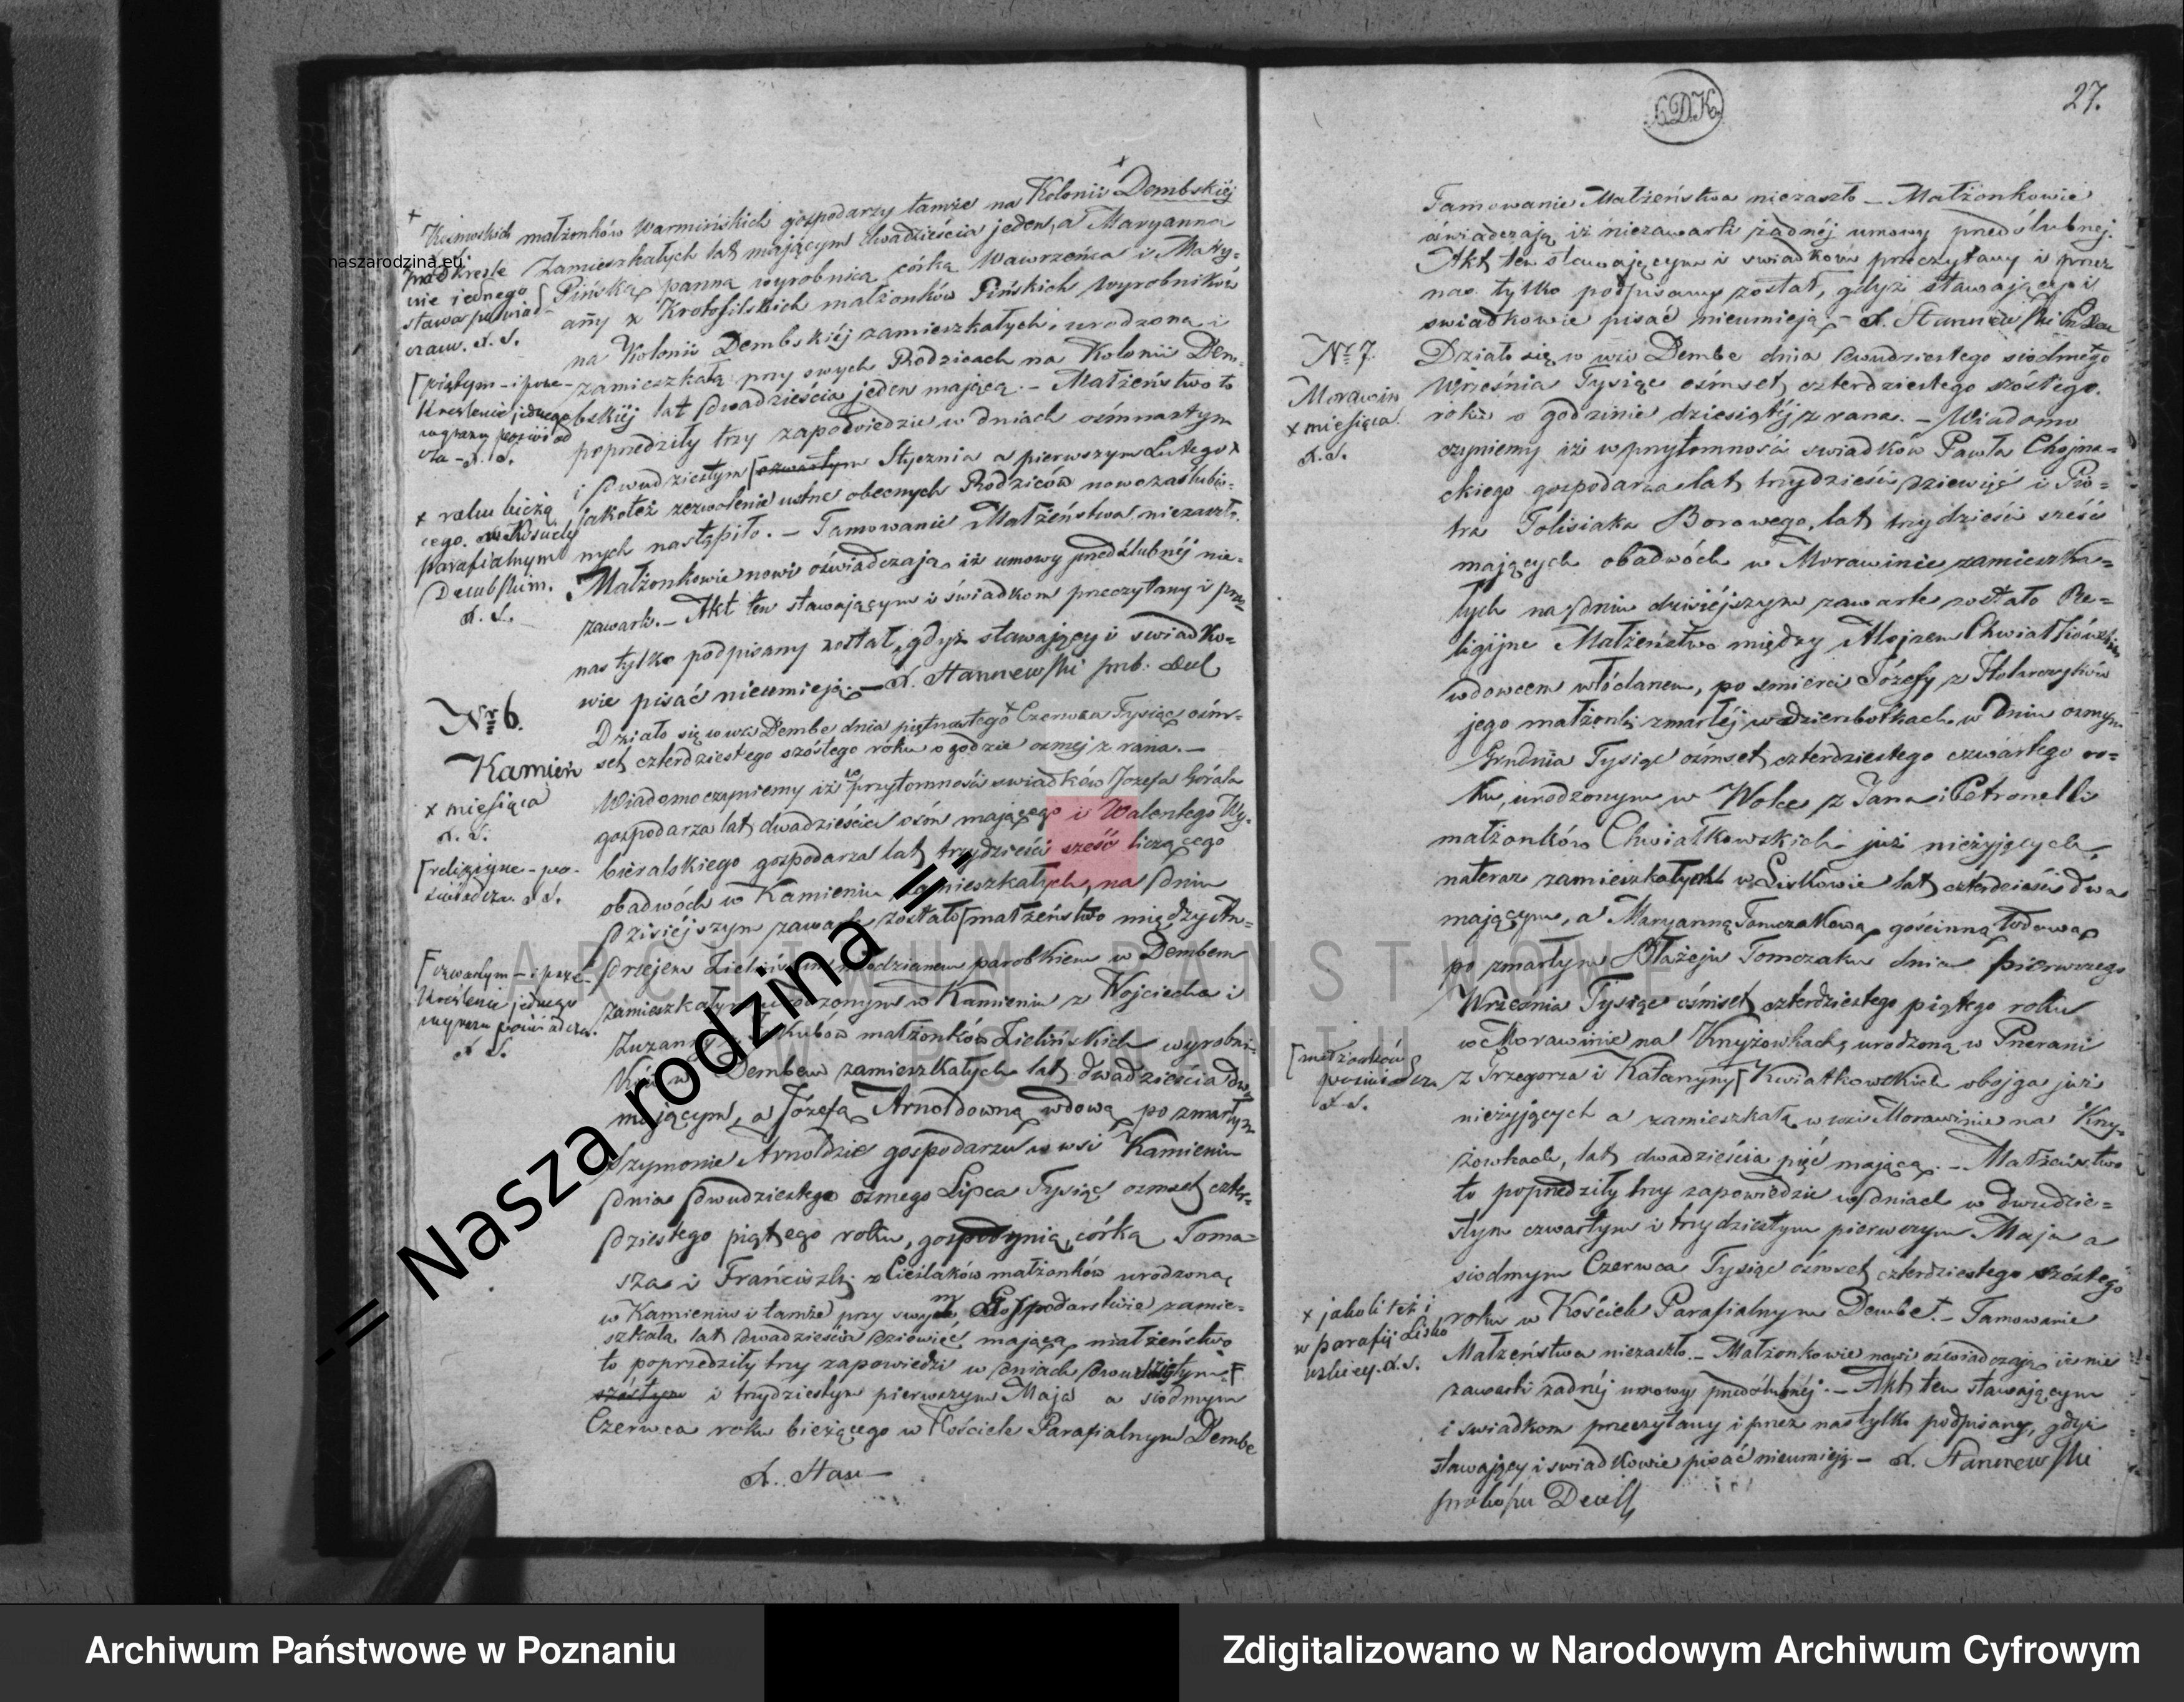 Kolonii Dembskiej
małżonków Warmińskich gospodarzy tamże na
zamieszkałych lat mającym dwadzieścia jeden, a Maryanną
Pińską panną wyrobnicą córką Wawrzeńca i Mary-
anny z Krotofilskich małżonków Pińskich wyrobników
na Kolonii Dembskiéj zamieszkałych, urodzoną i
zamieszkałą przy swych Rodzicach na Kolonii Dem-
bskiéj lat dwadzieścia jeden mającą. – Małżeństwo to
poprzedziły trzy zapowiedzie w dniach ośmnastym
i dwudziestym Stycznia a pierwszym Lutego x
jakoteż zezwolenie ustne obecnych Rodziców nowozaślubio-
nych nastąpiło. – Tamowanie Małżeństwa niezaszło.
Małżonkowie nowi oświadczają, iż umowy przedślubnéj nie-
zawarli. – Akt ten stawającym i świadkom przeczytany i przez
nas tylko podpisany został, gdyż stawający i swiadko-
wie pisać nieumieją. –
x roku bieżą
cego. w Kościele
parafialnym
Dembskim.
Nr 6.
Kamień
x miesiąca
[religijne – po-
świadczam
[czwartym – i prze-
kreślenie jednego
wyrazu poświadcza.
Działo się w wsi Dembe dnia piętnastego x Czerwca Tysiąc ośm-
set czterdziestego szóstego roku o godzinie osmej z rana. –
Wiadomo czyniemy iż w przytomności swiadków Józefa Górala
gospodarza lat dwadzieścia ośm mającego i Walentego Wy-
bieralskiego gospodarza lat trzydzieści sześć liczącego
obadwóch w Kamieniu zamieszkałych, na dniu
dzisiéjszym zawarte zostało [małżeństwo między An-
drzejem Zielińskim młodzianem parobkiem w Dembem
zamieszkałym urodzonym w Kamieniu z Wojciecha i
Zuzanny z Jakubów małżonków Zielińskich wyrobni-
ków w Dembem zamieszkałych lat dwadzieścia dwa
mającym, a Józefą Arnoldowną wdową po zmarłym
Szymonie Arnoldzie gospodarzu w wsi Kamieniu
dnia dwudziestego osmego Lipca Tysiąc osmset czter-
dziestego piątego roku, gospodynią, córką Toma-
sza i Franciszki z Cieślaków małżonków urodzoną
w Kamieniu i tamże przy swym Gospodarstwie zamie-
szkałą lat dwadzieścia dziewięć mającą, małżeństwo
to poprzedziły trzy zapowiedzi w dniach dwudziestym [
szóstym i trzydziestym pierwszym Maja a siodmym
Czerwca roku bieżącego w Kościele Parafialnym Dembe
27.
Tamowanie Małżeństwa niezaszło – Małżonkowie
oświadczają iż niezawarli żadnéj umowy przedślubnej.
Akt ten stawającym i swiadkom przeczytany i przez
nas tylko podpisany został, gdyż stawający i
swiadkowie pisać nieumieją –
Nr 7.
Morawin
x miesiąca
Działo się w wsi Dembe dnia dwudziestego siodmego
Września Tysiąc ośmset czterdziestego szóstego
roku o godzinie dziesiątéj z rana. – Wiadomo
czyniemy iż w przytomności swiadków Pawła Chojna-
ckiego gospodarza lat trzydzieści dziewięć i Pio-
tra Tolisiaka Borowego, lat trzydzieści sześć
mających obadwóch w Morawinie zamieszka-
łych na dniu dzisiéjszym zawarte zostało Re-
ligijne Małżeństwo między Alojzem Chwiałkowskim
wdowcem włościanem, po smierci Józefy z Stolarczyków
jego małżonki zmarłéj w Dzierzbotkach w Dniu osmym
Grudnia Tysiąc ośmset czterdziestego czwartego ro-
ku, urodzonym w Wolce z Jana i Petronelli
małżonków Chwiałkowskich już nieżyjących,
nateraz zamieszkałym w Liskowie lat czterdzieści dwa
mającym, a Maryanną Tomczakową gościnną wdową
po zmarłym Błażeju Tomczaku dnia pierwszego
Września Tysiąc ośmset czterdziestego piątego roku
w Morawinie na Knyżowkach, urodzoną w Pnerani
z Grzegorza i Katarzyny [Kwiatkowskich obojga już
nieżyjących a zamieszkałą w wsi Morawinie na Kny-
żowkach, lat dwadzieścia pięć mającą. – Małżeństwo
to poprzedziły trzy zapowiedzie w dniach w dwudzie-
stym czwartym i trzydziestym pierwszym Maja a
siodmym Czerwca Tysiąc ośmset czterdziestego szóstego
roku w Kościele Parafialnym Dembe x. – Tamowanie
Małżeństwa niezaszło. – Małżonkowie nowi oświadczają iż nie
zawarli żadnéj umowy przedślubnéj. – Akt ten stawającym
i swiadkom przeczytany i przez nas tylko podpisany, gdyż
stawający i swiadkowie pisać nieumieją –
[małżonków
x jakoli też i
w parafii Lisko
naszarodzina.eu
-= Nasza rodzina =-
ARCHIWUM PAŃSTWOWE
W POZNANIU
Archiwum Państwowe w Poznaniu
Zdigitalizowano w Narodowym Archiwum Cyfrowym